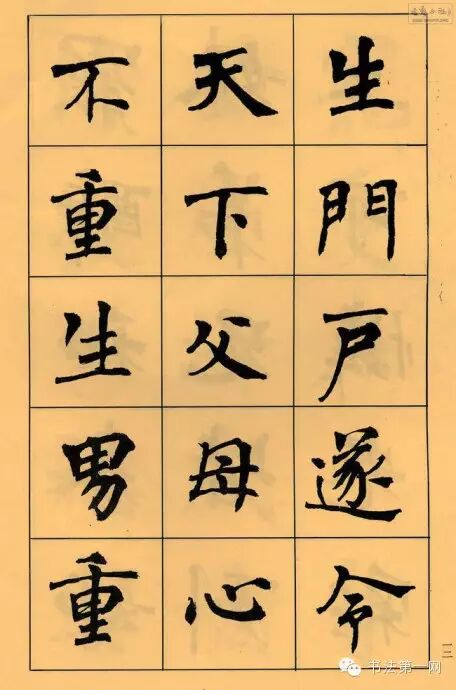 生門戶遂令
天下父母心
不重生男重
一二
书法第一网